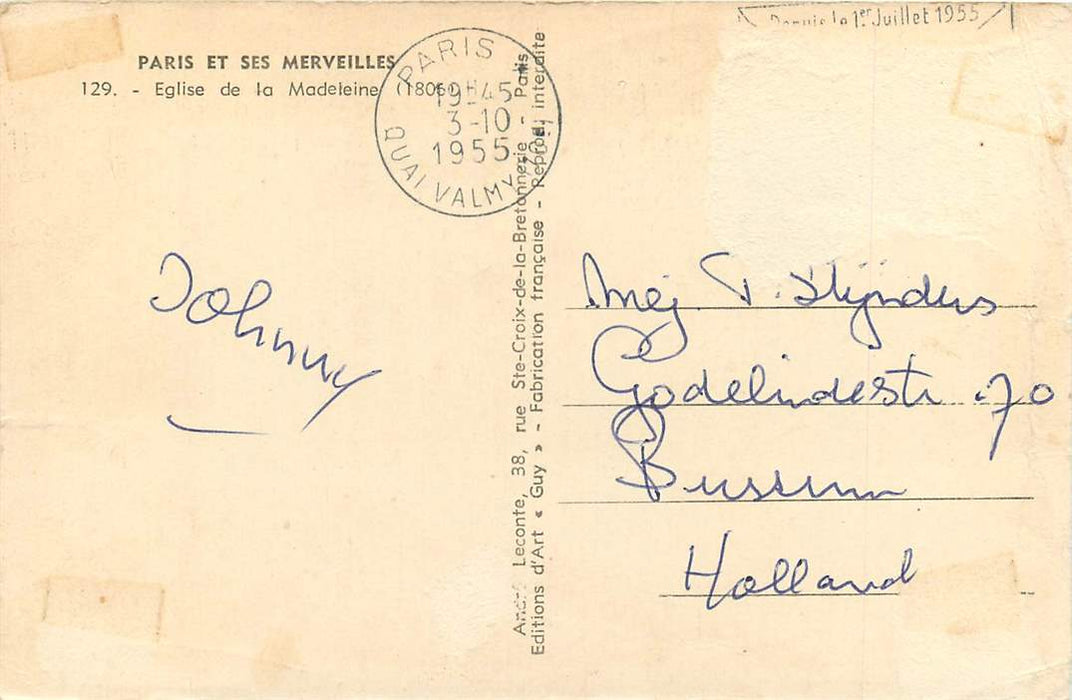 PARIS ET SES MERVEILLES
129. - Eglise de la Madeleine
Depuis le 1er Juillet 1955
PARIS
19H45
3-10
1955
QUAI VALMY
André Leconte, 38, rue Ste-Croix-de-la-Bretonnerie - Paris
Editions d'Art « Guy » - Fabrication française - Reprod. interdite
Johnny
Mej T. Slijnders
Godelindestr 70
Bussum
Holland